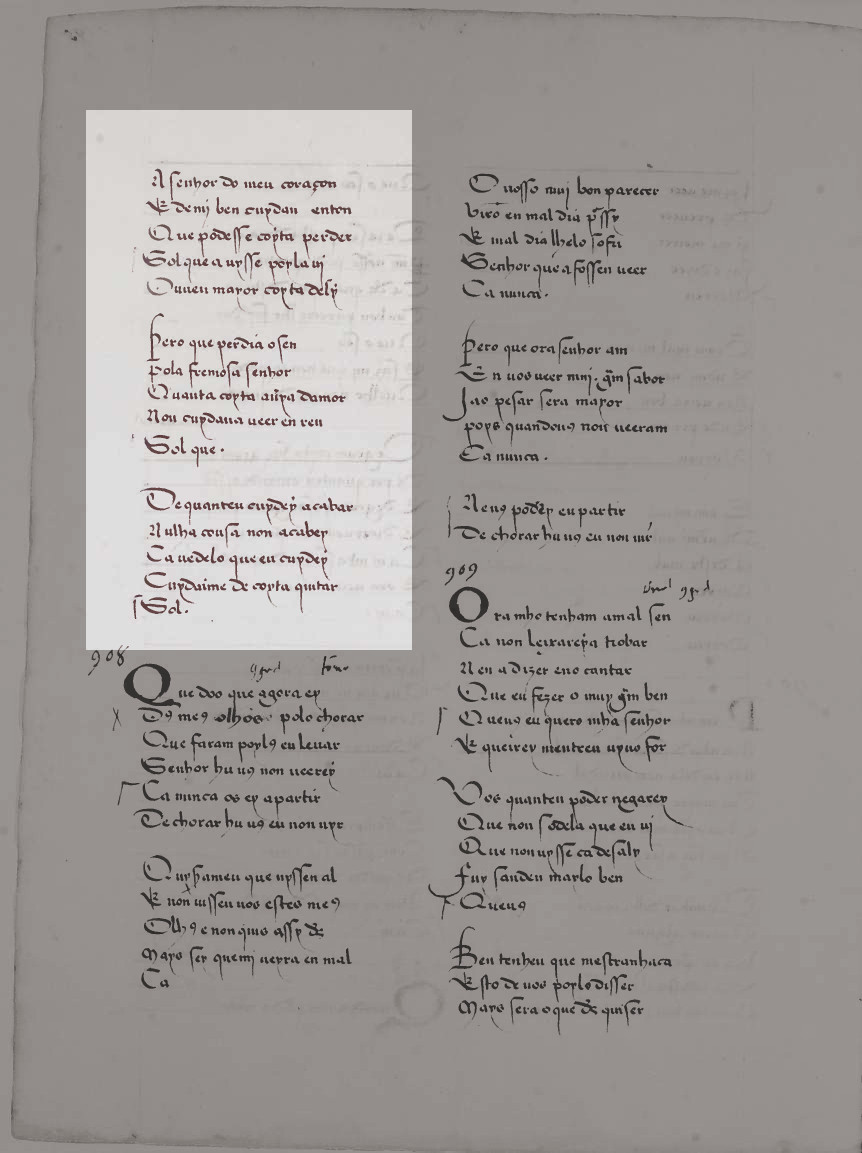 A senhor do meu coraçon
E demi ben cuydau enton
Que podesse coyta perder
Sol que a uysse poyla ui
Ouueu mayor coyta dely
Pero que perdia o sen
pola fremosa senhor
Quanta coyta auya damor
Non cuydaua ueer en ren
Sol que .
De quanteu cuydey acabar
Nulha cousa non acabey
Ca uedelo que eu cuydey
Cuydaime de coyta quitar
Sol.
908
Que doo que agora ey
D9 me9 olhos polo chorar
Que faram poyl9 eu leuar
Senhor hu u9 non ueerey
Ca nunca os ey a partir
De chorar hu u9 eu non uyr
Quysameu que uyssen al
E non uissen uos estes me9
Olh9 e non quis assy ds
Mays ser quemi uerra en mal
Ca
O uosso mui bon parecer
Viron en mal dia pssy
E mal dia lhelo sofri
Senhor que a fossen ueer
Ca nunca .
Pero que ora senhor am
En uos ueer mui. gm sabor
Jao pesar sera mayor
poys quandou9 non ueeram
Ca nunca .
Neu9 poderey eu partir
De chorar hu u9 eu non uir
909
Ora mho tenham a mal sen
Ca non leixareya trobar
Nen a dizer eno cantar
Que eu fezer o muy gm ben
Queu9 eu quero mha senhor
E queirey mentreu uyuo for
Vos quanteu poder negarey
Que non sodela que eu ui
Que non uysse ca desaly
Fuy sandeu maylo ben
Queu9
Ben tenheu que mestranhara
Esto de uos poylo disser
Mays sera o que ds quiser